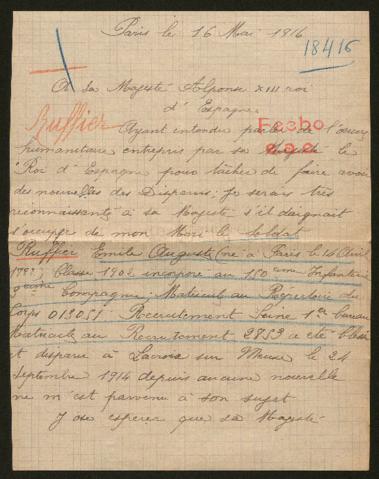 Paris le 16 Mai 1916
18416
A sa Majesté Alphonse XIII roi
d'Espagne
Ruffier
Fecho
Ayant entendu parler de l'œuvre
humanitaire entrepris par sa Majesté le
Roi d'Espagne pour tâcher de faire avoir
des nouvelles des Disparus. Je serais très
reconnaissante à sa Majesté s'il daignait
s'occuper de mon Mari le soldat
Ruffier Emile Auguste (né à Paris le 14 Avril
Classe 1902 incorporé au 150eme Infanterie
eme Compagnie. Matricule au Répertoire du
Corps 013051 Recrutement Seine 1er bureau
Matricule au Recrutement 2753 a été blessé
et disparu à Lacroix sur Meuse le 24
Septembre 1914 depuis aucune nouvelle
ne m'est parvenu à son sujet
J'ose esperer que sa Majesté